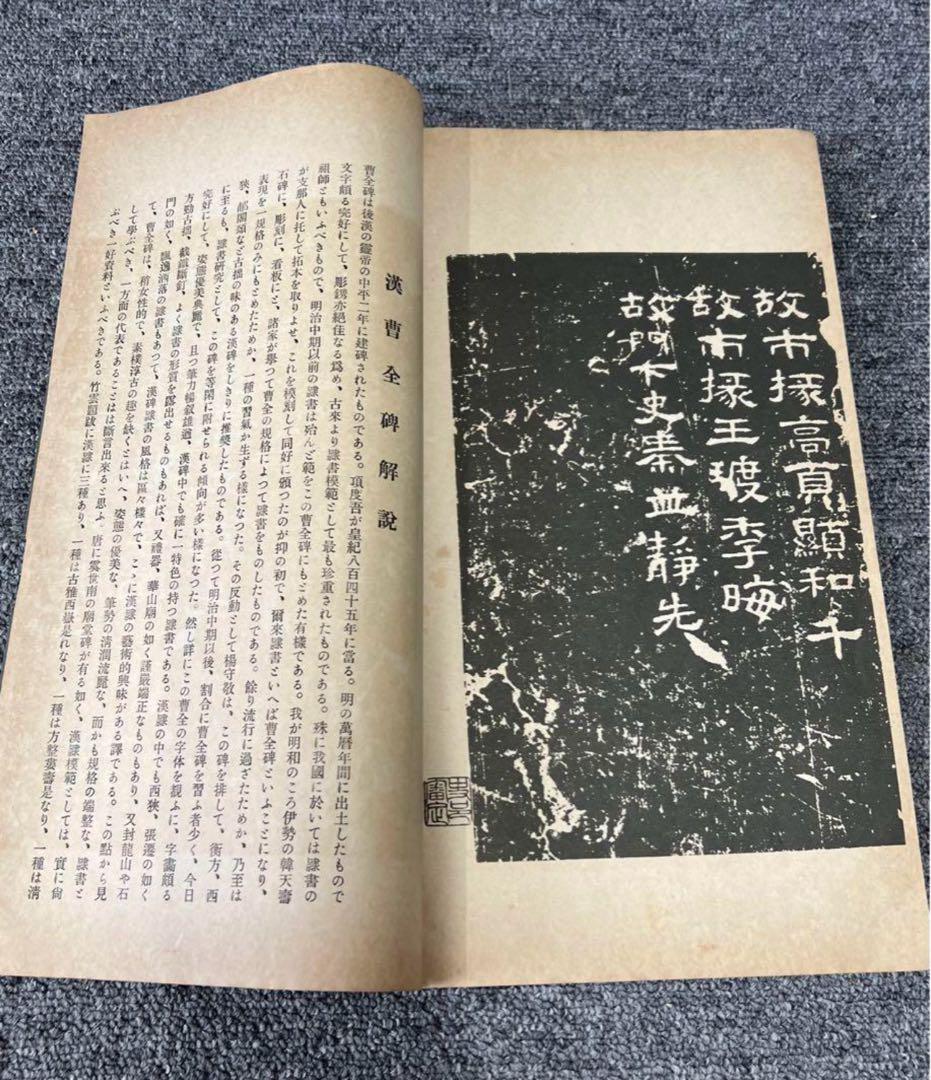 故市掾高頁顯和千
故市掾王玻季晦
故門下史秦並靜先
漢曹全碑解說
曹全碑は後漢の靈帝の中平二年に建碑されたものである。項度吾が皇紀八百四十五年に當る。明の萬曆年間に出土したもので
文字頗る完好にして、彫鐫亦絕佳なる爲め、古來より隷書模範として最も珍重されたものである。殊に我國に於いては隷書の
祖師ともいふべきもので、明治中期以前の隷書は殆んど範をこの曹全碑にもとめた有樣である。我が明和のころ伊勢の韓天壽
が支那人に托して拓本を取りよせ、これを模刻して同好に頒つたのが抑の初で、爾來隷書といへば曹全碑といふことになり、
石碑に、彫刻に、看板にと、諸家が擧つて曹全の規格によつて隷書をものしたものである。餘り流行に過ぎたためか、乃至は
表現を一規格のみにもとめたためか、一種の習氣か生ずる樣になつた。その反動として楊守敬は、この碑を排して、衡方、西
狹、郙閣頌など古拙の味のある漢碑をしきりに推奬したものである。從つて明治中期以後、割合に曹全碑を習ふ者少く、今日
に至るも、隷書研究として、この碑を等閑に附せられる傾向が多い樣になつた。然し詳にこの曹全の字体を覩ふに、字畫頗る
完好にして、姿態優美典麗で、且つ筆力暢叙雄遒、漢碑中でも確に一特色の持つ隷書である。漢隷の中でも西狹、張遷の如く
方勁古拙、截鐵斷釘、よく隷書の形質を露出せるものもあれば、又禮器、華山廟の如く謹嚴端正なものもあり、又封龍山や石
門の如く、飄逸洒落の隷書もあつて、漢碑隷書の風格は區々樣々で、こゝに漢隷の藝術的興味がある譯である。この點から見
て、曹全碑は、稍女性的で、素樸淳古の趣を缺くとはいへ、姿態の優美な、筆勢の淸潤流麗な、而かも規格の端整な、隷書と
して學ぶべき、一方面の代表であることは斷言出來ると思ふ。唐に虞世南の廟堂碑が有る如く、漢隷模範としては、實に尙
ぶべき一好資料といふべきである。竹雲題跋に漢隷に三種あり、一種は古雅西嶽是れなり、一種は方整婁壽是なり、一種は淸